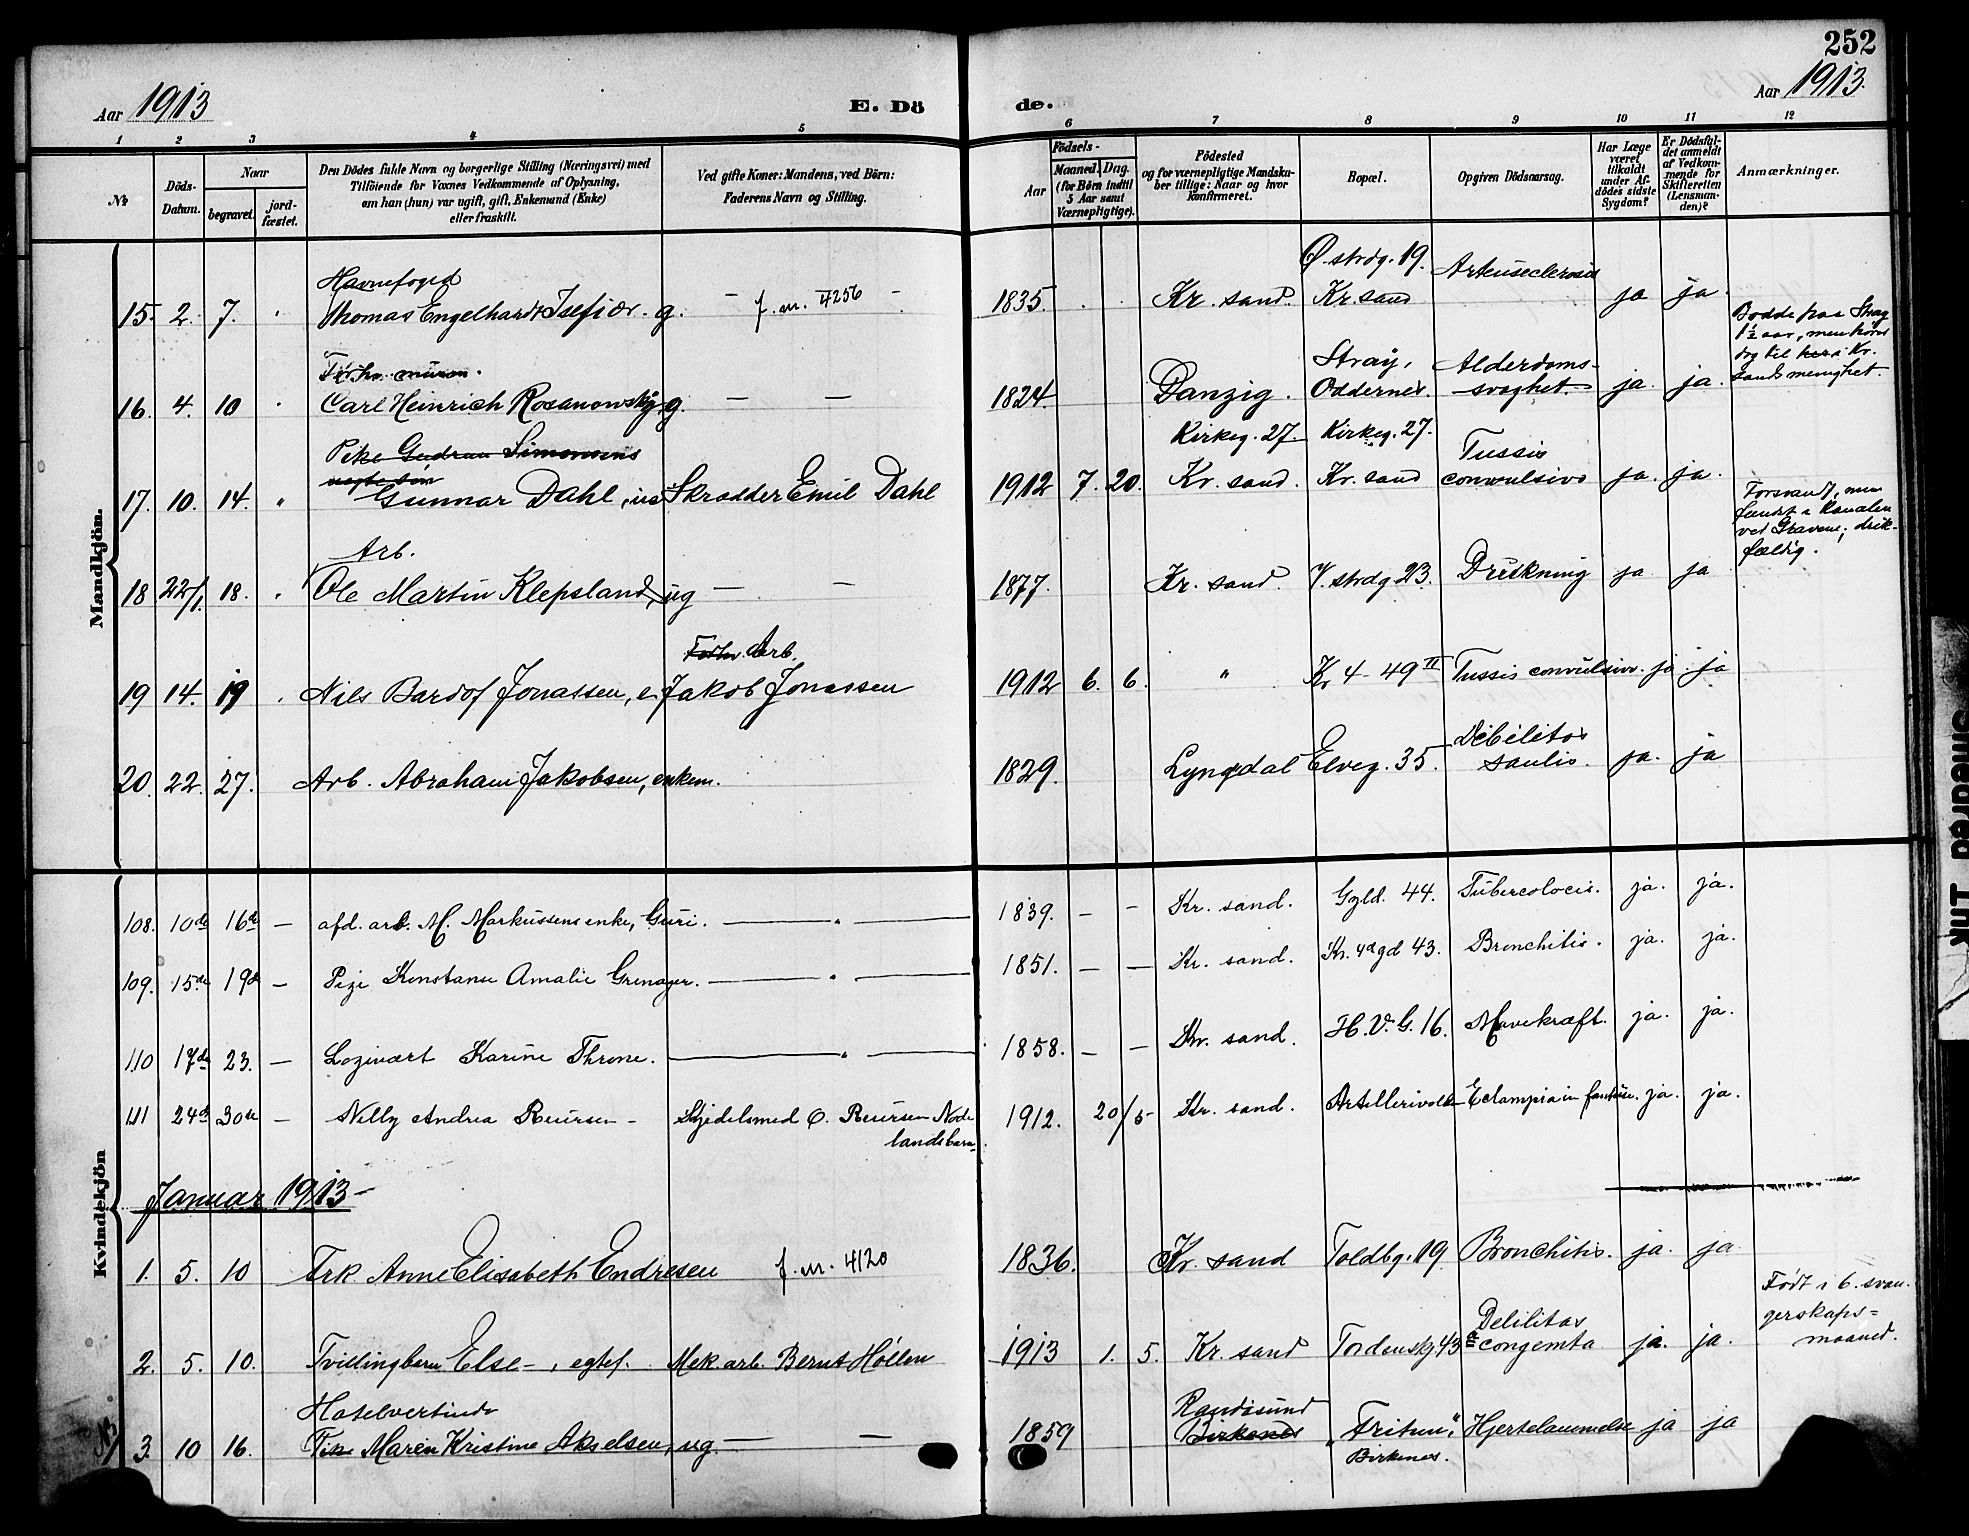 252
Aar 1913
E. Dö
de.
Aar 1913.
1 2 3 4 5 6 7 8 9 10 11 12
№
Döds-
Datum.
Naar
begravet.
jord-
fæstet.
Den Dödes fulde Navn og borgerlige Stilling (Næringsvei) med
Tilföiende for Voxnes Vedkommende af Oplysning,
om han (hun) var ugift, gift, Enkemand (Enke)
eller fraskilt.
Ved gifte Koner: Mandens, ved Börn:
Faderens Navn og Stilling.
Födsels-
Aar
Maaned. Dag.
(for Börn indtil
5 Aar samt
Værnepligtige).
Födested
og for værnepligtige Mandska-
ber tillige: Naar og hvor
konfirmeret.
Bopæl.
Opgiven Dödsaarsag.
Har Læge
været
tilkaldt
under Af-
dödes sidste
Sygdom?
Er Dödsfal-
det anmeldt
af Vedkom-
mende for
Skifteretten
(Lensman-
den)?
Anmærkninger.
Mandkjön.
Havnefoged
15. 2. 7. Thomas Engelhardt Isefiær. g. — f. m. 4256 — 1835. Kr. sand. Ø. strdg. 19. Kr. sand ja ja
16. 4. 10 Carl Heinrich Rosanowsky. g. — — 1824. Danzig. Stray, Oddernes. Alderdoms-
svaghet. ja. ja.
Bodde paa Stray
1½ aar, men hører
dog til her i Kr.
sands menighet
Pike Gudrun Simonsens
17. 10. 14. " Gunnar Dahl, Skrædder Emil Dahl 1912 7. 20. Kirkeg. 27. Kr. sand. Kirkeg. 27. Kr. sand Tussis
convulsiva ja. ja.
Arb.
18 22/1. 18. Ole Martin Klepsland, ug — — 1877. Kr. sand V. strdg 23. Drukning ja ja
Forsvandt, men
fandt i Kanalen
ved Gravene; drik-
fældig.
Forhv. Arb.
19 14. 19 Nils Bardof Jonassen, e. Jakob Jonassen 1912 6. 6. " Kr 4 - 49 II Tussis convulsiv. ja. ja
20. 22. 27. Arb. Abraham Jakobsen, enkem. 1829. Lyngdal Elveg. 35. Debilitas
ja. ja
Kvindekjön
108. 10de 16de — afd. arb. M. Markussens enke, Guri. — " — 1839. — — Kr. sand. Gyld. 44. Tubercolocis. ja. ja.
109. 15de 19de — Pige Konstanse Amalie Grenager. — " — 1851. — — Kr. sand. Kr. 4de gd 43. Bronchitis. ja. ja.
110 17de 23. — Logivært Karine Throne. — " — 1858. — — Kr. sand. H. V. G. 16. Mavekræft. ja. ja.
111 24de 30de — Nelly Andrea Reiersen — Skjedelsmed O. Reiersen 1912. 20/5 Kr. sand. ja. ja.
Januar 1913 —
1. 5. 10 Frk Anne Elisabeth Endresen f. m. 4120 1836. Kr. sand Toldbg. 19 Bronchitis. ja. ja
2. 5. 10. Tvillingbarn Else —, egtef. Mek. arb. Bernt Hollen 1913 1. 5. Kr. sand Tordenskj. 43 Debilitas
congenita ja. ja.
Født i 6. svan-
gerskaps-
maaned.
Hotelvertinde
3. 10 16. Maren Kristine Akselsen, ug. — — 1859 Randøsund Birkenes "Triton", Birkenes. Hjertelammelse ja ja